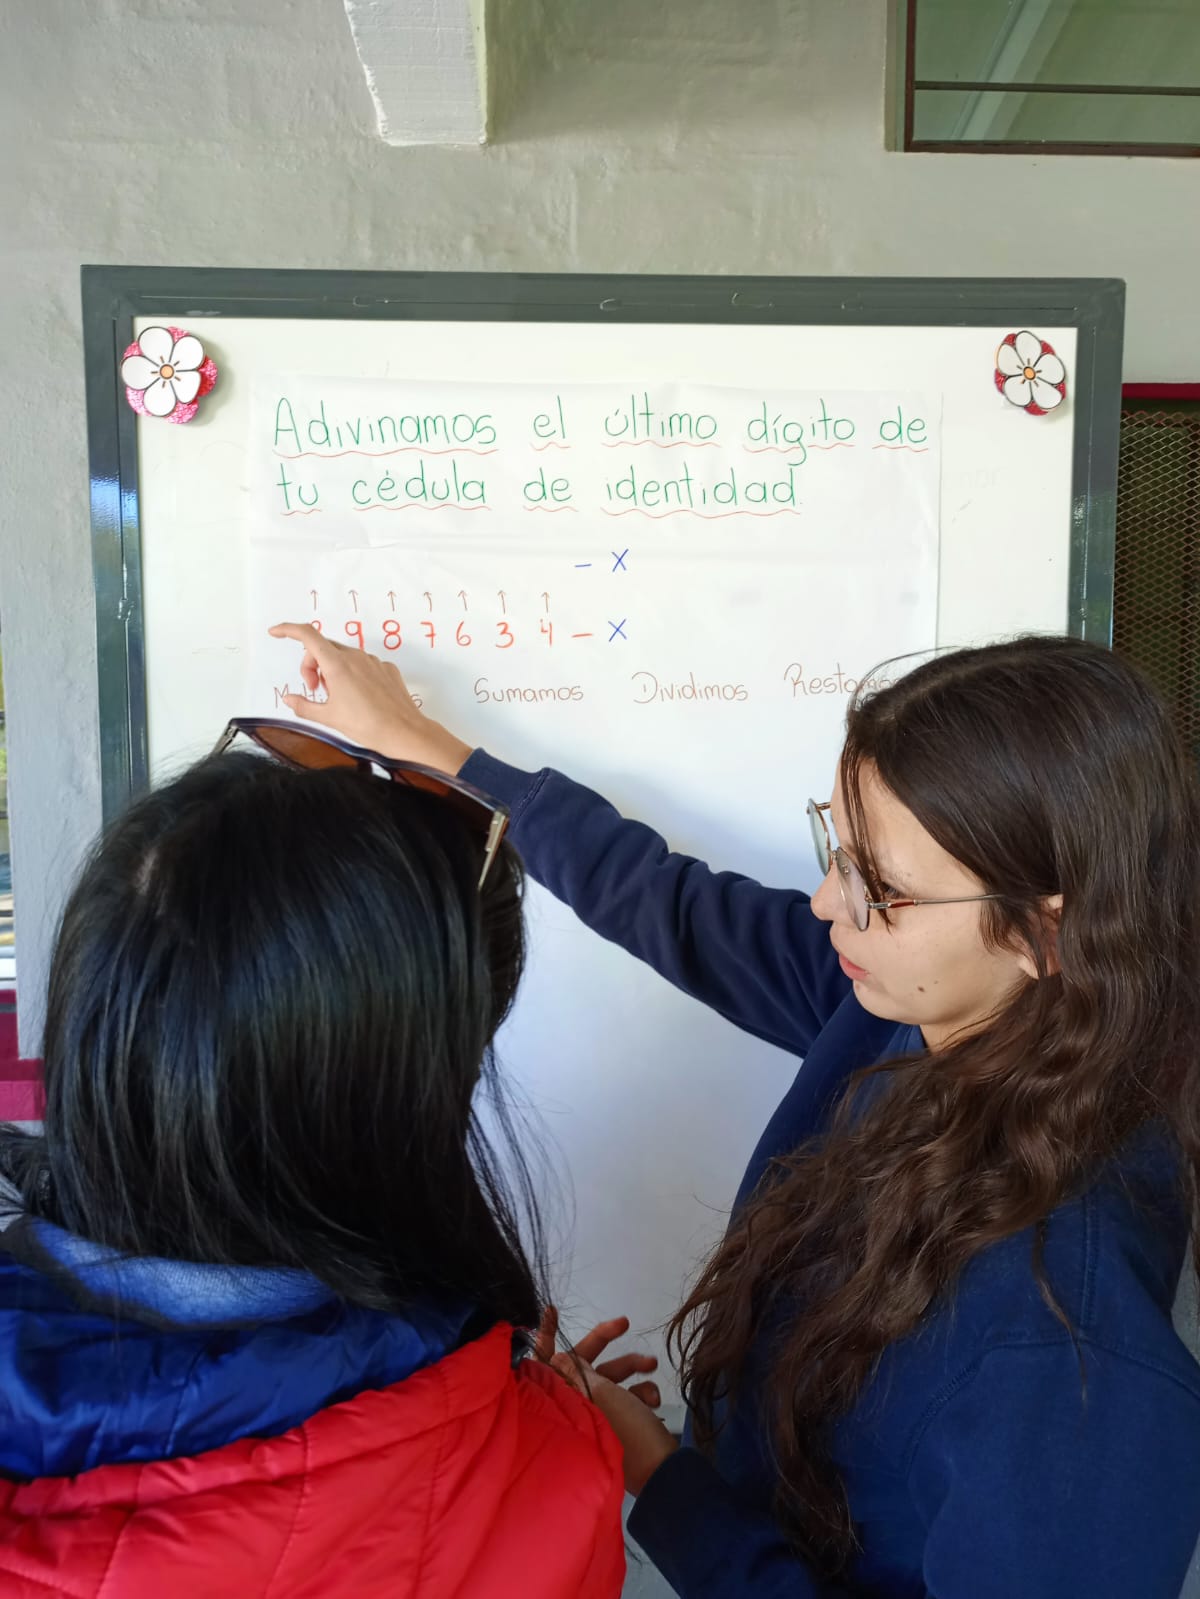 Adivinamos el último dígito de
tu cédula de identidad.
- X
↑ ↑ ↑ ↑ ↑ ↑ ↑
9 8 7 6 3 4 - X
Sumamos Dividimos